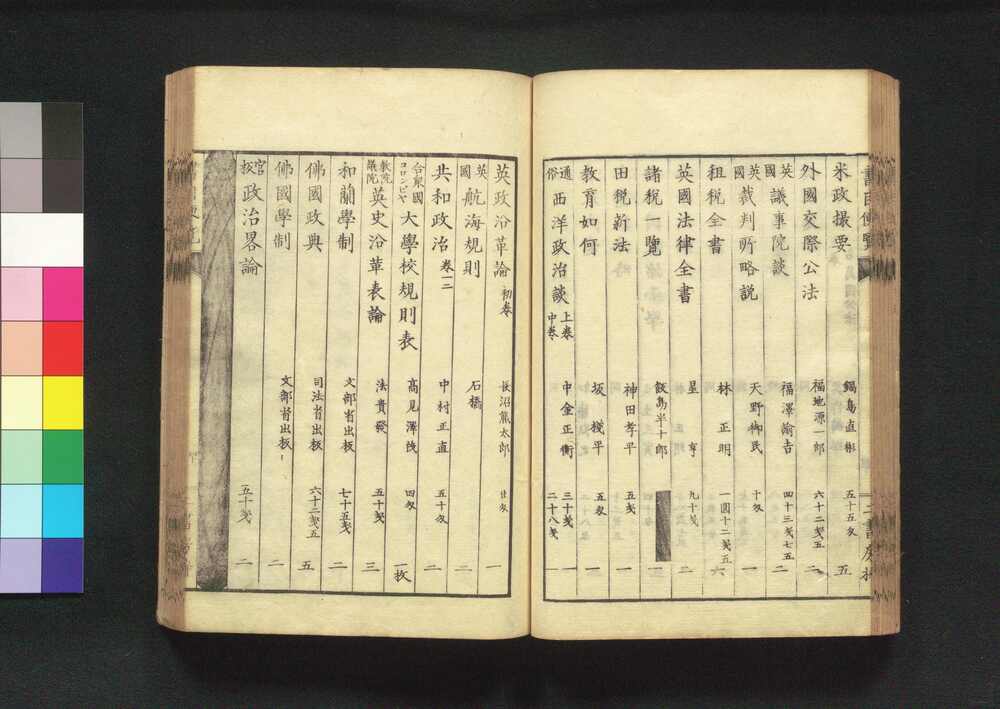 米政撮要 鍋島直彬 五十五匁 五
外國交際公法 福地源一郎 六十二匁五 二
英國 議事院談 福澤諭吉 四十三匁七五 二
英國 裁判所略説 天野御民 十匁 一
租税全書 林 正明 一圓十二匁五 六
英國法律全書 星 亨 九十匁 二
諸税一覽 飯島半十郎 一
田税新法 神田孝平 五匁 一
教育如何 坂 棧平 五匁 一
通俗 西洋政治談 上卷 中卷 中金正衡 三十匁 二十八匁 一 一
英政沿革論 初卷 長沼熊太郎 廿匁 一
英國 航海規則 石橋 二
共和政治 卷一二 中村正直 五十匁 二
合衆國 コロンビヤ 大學校規則表 高見澤茂 四匁 一枚
教院 議院 英史沿革表論 法貴發 五十匁 三
和蘭學制 文部省出板 七十五匁 二
佛國政典 司法省出板 六十二匁五 五
佛國學制 文部省出板 二
官板 政治畧論 五十匁 二